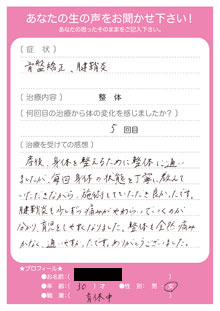 あなたの生の声をお聞かせ下さい！
あなたの思ったそのままをご記入下さい。
〔症　状〕
骨盤矯正、腱鞘炎
〔治療内容〕　整　体
〔何回目の治療から体の変化を感じましたか？〕
5 回目
〔治療を受けての感想〕
産後、身体を整えるために整体に通い
ましたが、毎回身体の状態を丁寧に教えて
いただきながら、施術していただき良かったです。
腱鞘炎も少しずつ痛みがやわらいでいくのが
わかり、育児もしやすくなりました。整体も全然痛み
がなく、通いやすかったです。ありがとうございました。
＜プロフィール＞
●お名前：（
●年　齢：（ 30 ）才　●性　別：男・女
●職　業：（ 育休中